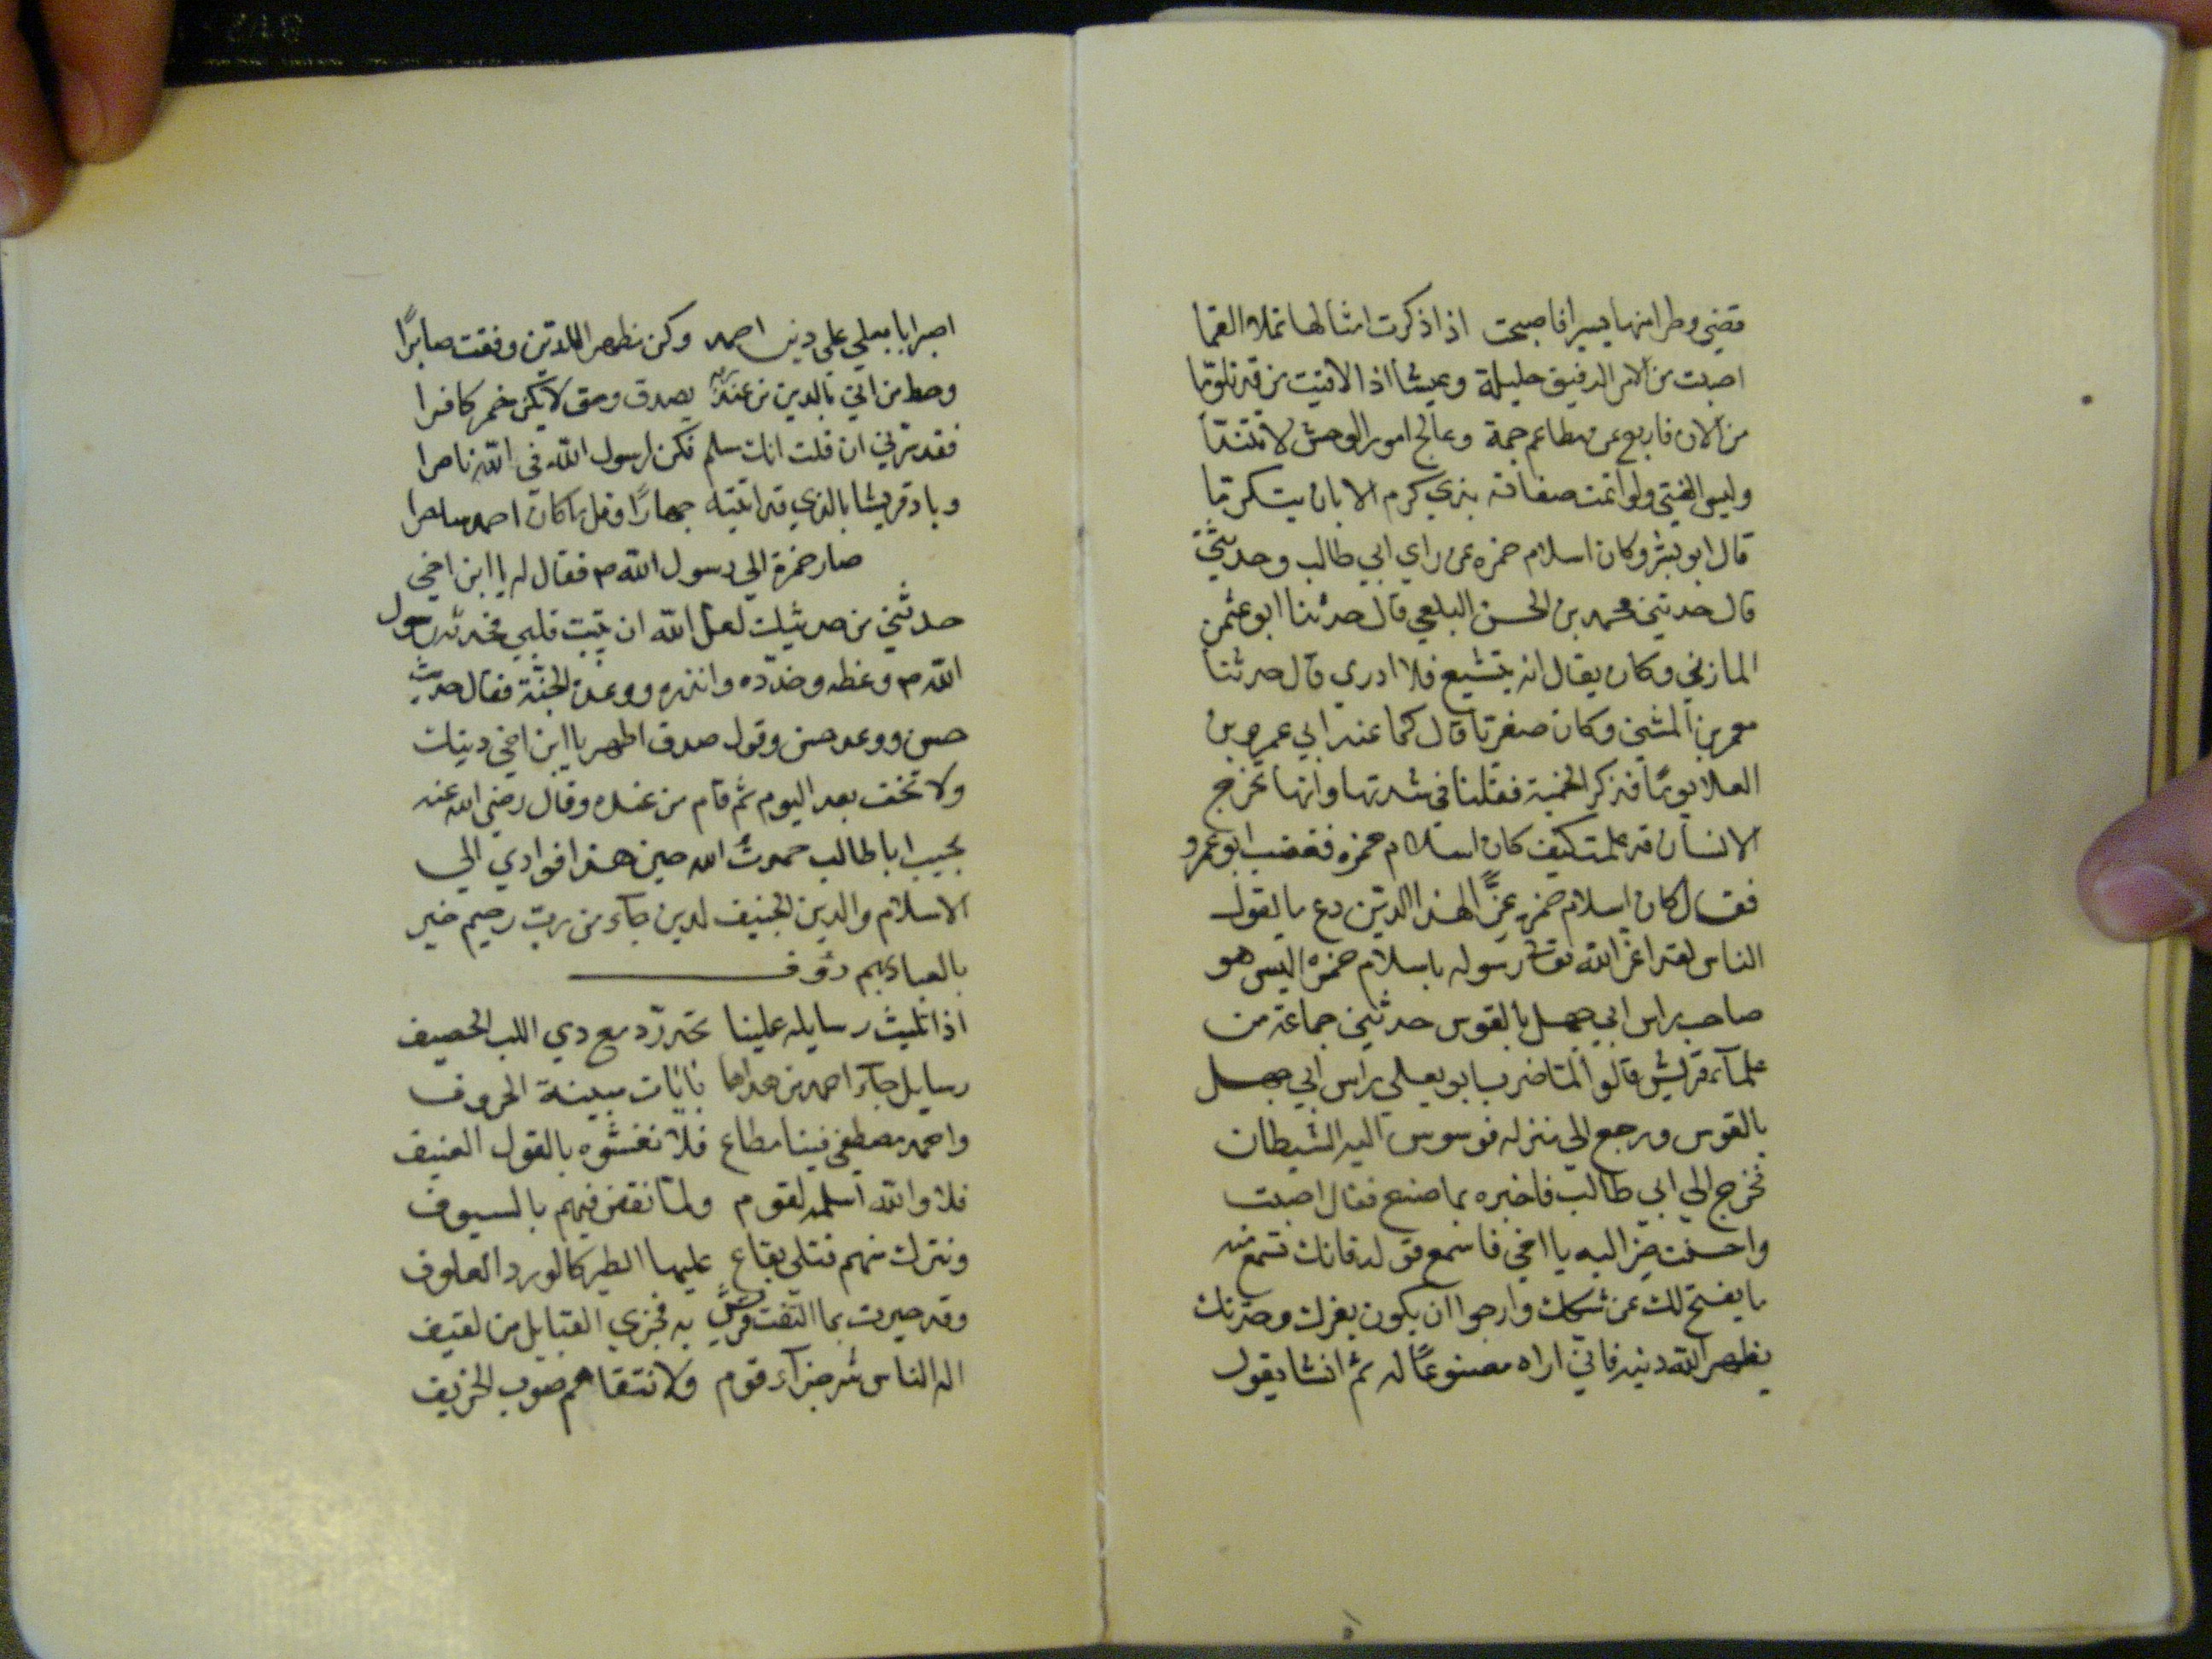 قضي وطرا منها يسيرا فاصبحت اذا ذكرت امثالها تملا الفما
اصبت من الدقيق حليلة وعيشا اذا لاقيت من قد تلوما
من الان فاربع عن مطاعم جمة وعالج امور لا
وليس الفتي ولو اتمت صفاته بذي كرم الا بان يتكرما
قال ابو بشر وكان اسلام حمزه عن راي ابي طالب وحديثي
قال حدثني محمد بن الحسن البلعي قال حدثنا ابو عثمن
المازني وكان يقال انه يتشيع فلا ادري قال حدثنا
معمر بن المثني وكان صفريا قال كنا عند ابي عمرو بن
العلا يومًا فذكر الحمية فقلنا في شدتها وانها تخرج
الانسان قد علمت كيف كان اسلام حمزه فغضب ابو عمرو
فقال كان اسلام حمزه عزًّا لهذا الدين دع ما يقول
الناس لقد اعز الله تعالى رسوله باسلام حمزه اليس هو
صاحب راس ابي جهل بالقوس حدثني جماعة من
علمآء قريش قالوا لما ضرب ابو يعلي راس ابي جهل
بالقوس ورجع الي منزله فوسوس اليه الشيطان
فخرج الي ابي طالب فاخبره بما صنع فقال اصبت
واحسنت صِرْ اليه يا اخي فاسمع قوله فانك تسمع منه
ما يفسح لك عن شكك وارجوا ان يكون بعزك وحزنك
يظهر الله دينه فاني اراه مصنوعًا له ثم انشا يقول
اصبرا با يعلي علي دين احمد وكن مظهرا للدين وفقت صابرًا
وحط من اتي بالدين من عند ربه بصدق وحق لا تكن حمز كافرا
فقد سرني ان قلت انك مسلم فكن لرسول الله في الله ناصرا
وباد قريشا بالذي قد اتيته جهارًا وقل ما كان احمد ساحرا
صار حمزة الي رسول الله ص فقال له يا ابن اخي
حدثني من حديثك لعل الله ان يثبت قلبي فحدثه رسول
الله ص وعظه وحذّره وانذره ووعده الجنّة فقال حديث
حسن ووعد حسن وقول صدق اظهر يا ابن اخي دينك
ولا تخف بعد اليوم ثم قام من عنده وقال رضي الله عنه
يجيب ابا طالب حمدت الله حين هدا فوادي الي
الاسلام والدين الحنيف لدين جآء من رب رحيم خبير
بالعباد بهم رؤوف
اذا تليت رسايله علينا تحدّر دمع ذي اللب الحصيف
رسايل جآء احمد من هداها بايات مبينة الحروف
واحمد مصطفي فينا مطاع فلا تغشوه بالقول العنيف
فلا والله نسلمه لقوم ولما نقض فيهم بالسيوف
ونترك منهم قتلي بقاع عليها الطير كالورد العلوف
وقد خبرت بما القت قريش به فجزي القبايل من ثقيف
اله الناس شر جزآء قوم ولا سقاهم صوب الخريف